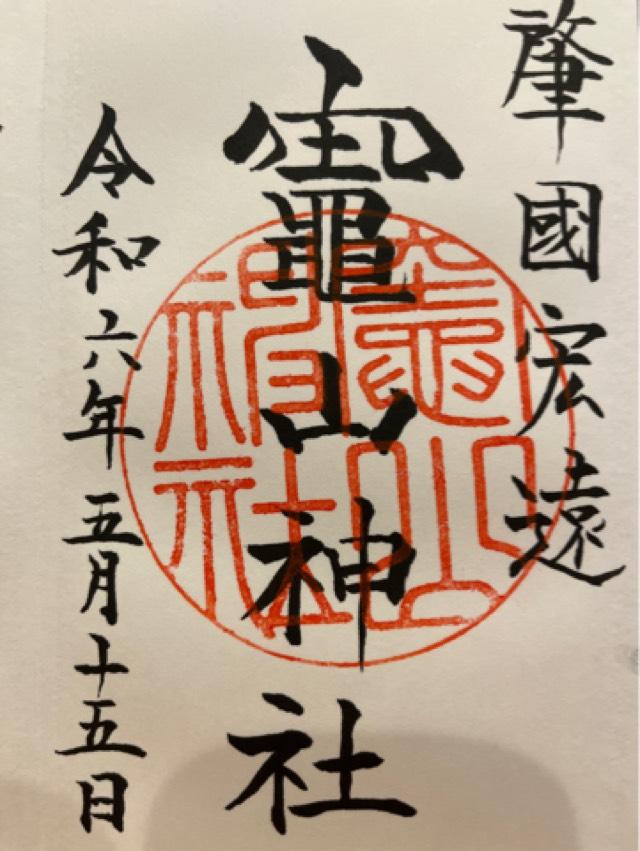 肇國宏遠
竈山神社
令和六年五月十五日
竈山
神社